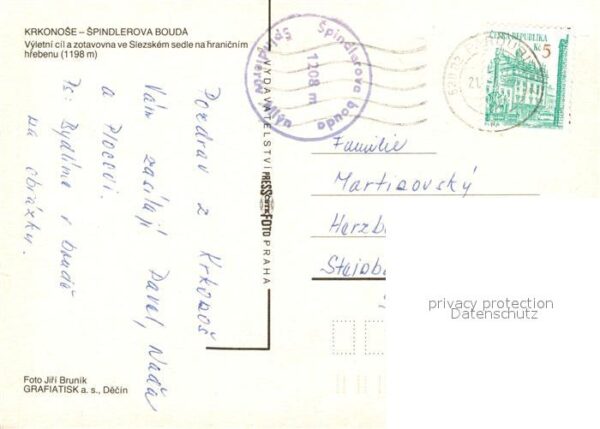 KRKONOŠE – ŠPINDLEROVA BOUDA
Výletní cíl a zotavovna ve Slezském sedle na hraničním
hřebenu (1198 m)
Pozdrav z Krkonoš
Vám zasílají Pavel, Naďa
a
Ps: Bydlíme v boudě
na obrázku.
Foto Jiří Bruník
GRAFIATISK a. s., Děčín
VYDAVATELSTVÍ PRESSFOTO PRAHA
Špindlerova bouda
1208 m
Špindlerův Mlýn
ČESKÁ REPUBLIKA
Kč 5
Familie
Martinovský
Herzb
Steinb
privacy protection
Datenschutz